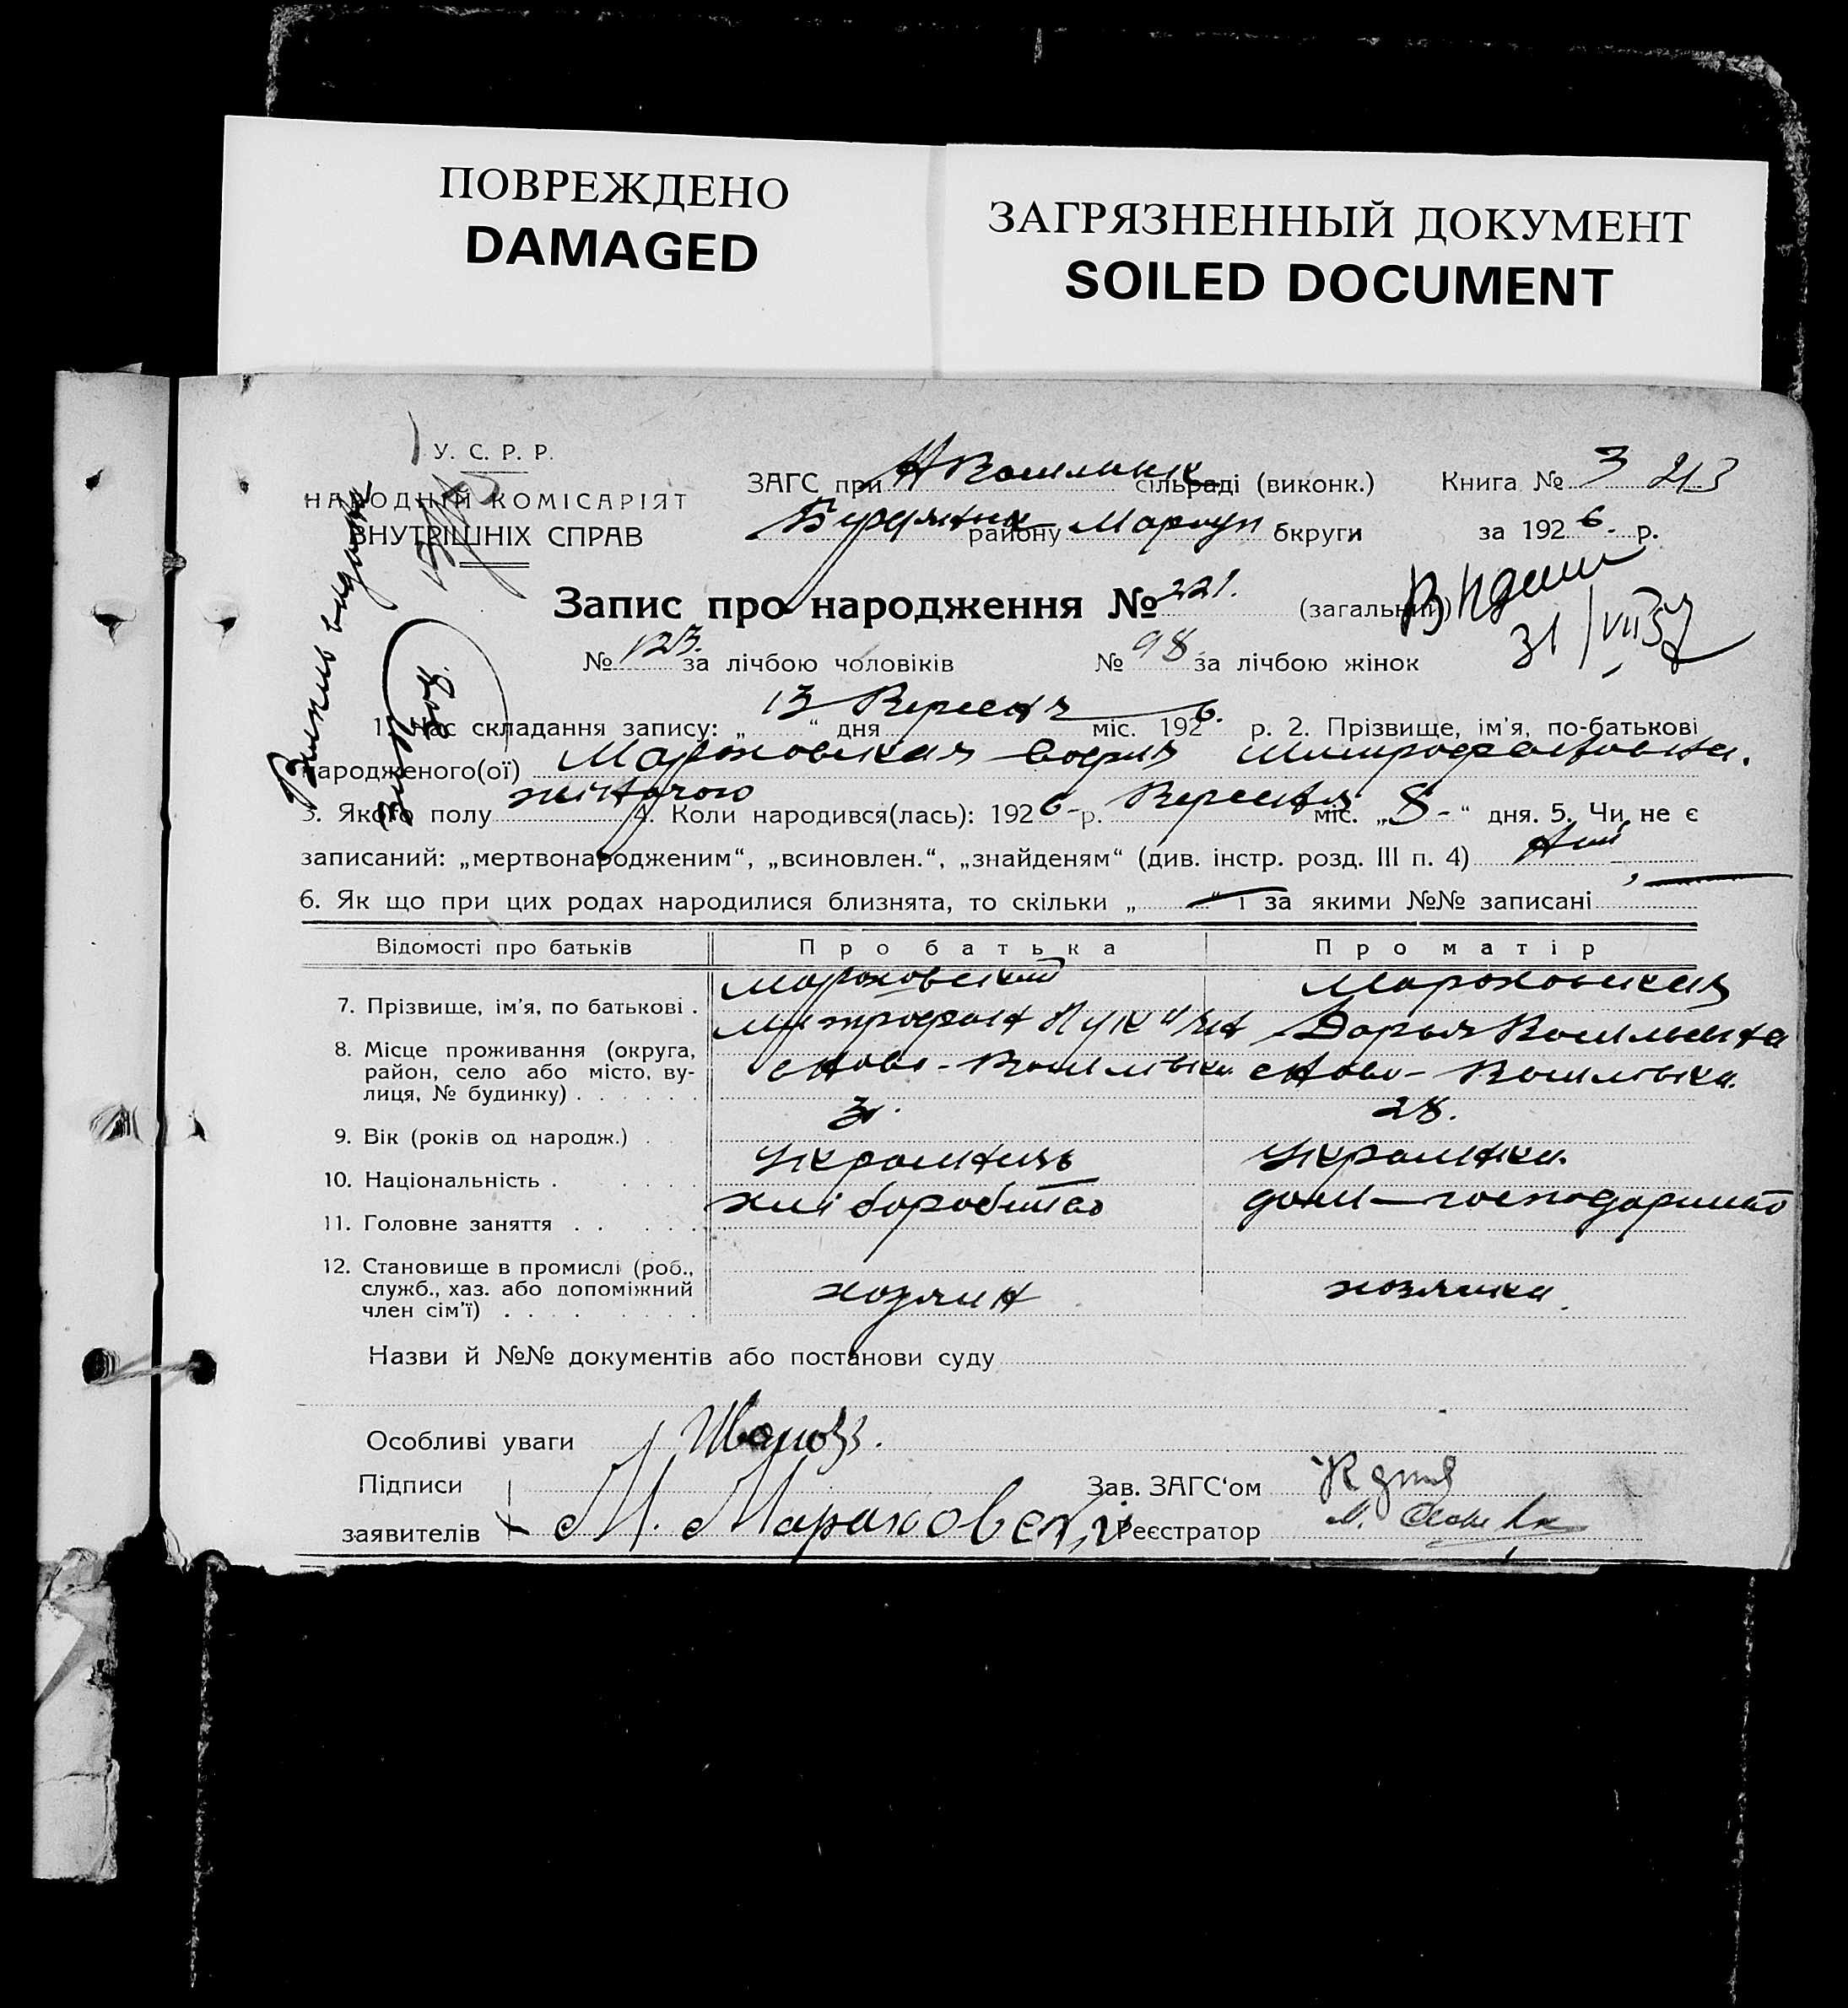 ПОВРЕЖДЕНО
DAMAGED
ЗАГРЯЗНЕННЫЙ ДОКУМЕНТ
SOILED DOCUMENT
У. С. Р. Р.
НАРОДНІЙ КОМІСАРІЯТ
ВНУТРІШНІХ СПРАВ
ЗАГС при сільраді (виконк.)
района Мариуп округи
Книга № 3 213
за 1926. р.
Запис про народження № 221. (загальний)
31/VII 57
№ 123. за лічбою чоловіків № 98 за лічбою жінок
1. Час складання запису: „13“ дня Вересня міс. 1926. р. 2. Прізвище, ім'я, по-батькові
народженого(ої) Мароховская Митрофановна.
3. Якого полу жіночого 4. Коли народився(лась): 1926 р. Вересня міс. „8“ дня. 5. Чи не є
записаний: „мертвонародженим“, „всиновлен.“, „знайденям“ (див. інстр. розд. III п. 4) Ні
6. Як що при цих родах народилися близнята, то скільки „—“ і за якими №№ записані —
Відомості про батьків Про батька Про матір
7. Прізвище, ім'я, по батькові . Мароховский Митрофан Лукич Мароховская Дарья Васильевна
8. Місце проживання (округа, район, село або місто, вулиця, № будинку) . . . . . . с Ново-Василівка с Ново-Василівка.
9. Вік (років од народж.) . 31. 28.
10. Національність . . . . . Українець Українка.
11. Головне заняття . . . . . хліборобство дом-господарство
12. Становище в промислі (роб., служб., хаз. або допоміжний член сім'ї) . . . . . . . хозяин хозяйка.
Назви й №№ документів або постанови суду
Особливі уваги
Підписи
заявителів М. Мароховский
Зав. ЗАГС'ом
Реєстратор